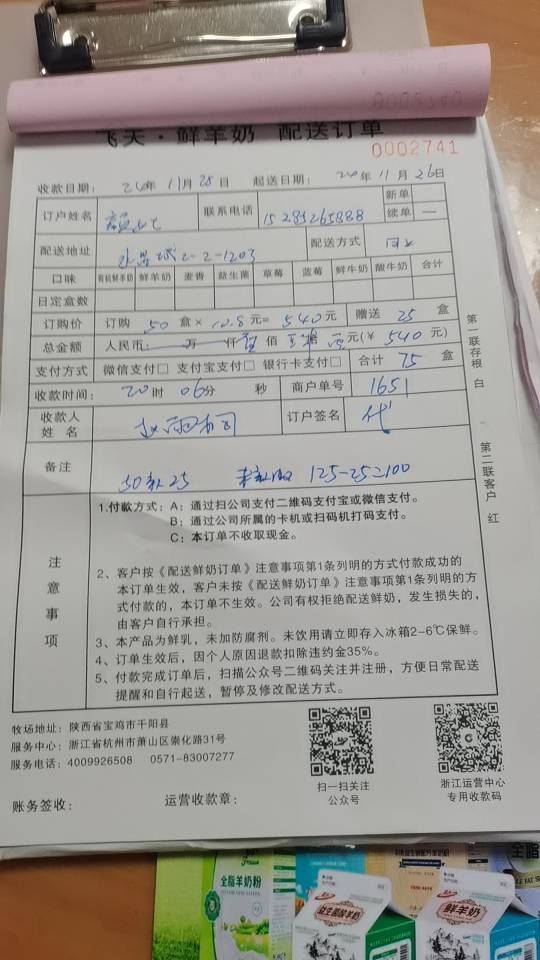 飞天·鲜羊奶 配送订单
0002741
收款日期: 2024年 11月 25日 起送日期: 2024年 11月 26日
订户姓名 联系电话 15285265888 新单
续单 一
配送地址 2-2-1203 配送方式
口味 有机鲜羊奶 鲜羊奶 麦香 益生菌 草莓 蓝莓 鲜牛奶 酸牛奶 合计
日定盒数
订购价 订购 50 盒× 10.8 元= 540元 赠送 25 盒
总金额 人民币: 万 仟 伍 佰 拾 元(¥ 540 元)
支付方式 微信支付□ 支付宝支付□ 银行卡支付□ 合计 75 盒
收款时间: 20时 06分 秒 商户单号 1651
收款人姓名 订户签名 代
备注
50送25 125-25=100
注意事项
1.付款方式: A: 通过扫公司支付二维码支付宝或微信支付。
B: 通过公司所属的卡机或扫码机打码支付。
C: 本订单不收取现金。
2、客户按《配送鲜奶订单》注意事项第1条列明的方式付款成功的
本订单生效, 客户未按《配送鲜奶订单》注意事项第1条列明的方
式付款的, 本订单不生效。公司有权拒绝配送鲜奶, 发生损失的,
由客户自行承担。
3、本产品为鲜乳, 未加防腐剂。未饮用请立即存入冰箱2-6℃保鲜。
4、订单生效后, 因个人原因退款扣除违约金35%。
5、付款完成订单后, 扫描公众号二维码关注并注册, 方便日常配送
提醒和自行起送, 暂停及修改配送方式。
第一联存根 白
第二联客户 红
牧场地址: 陕西省宝鸡市千阳县
服务中心: 浙江省杭州市萧山区崇化路31号
服务电话: 4009926508 0571-83007277
扫一扫关注
公众号
浙江运营中心
专用收款码
账务签收: 运营收款章:
全脂羊奶粉
益生菌酸羊奶
鲜羊奶
全脂